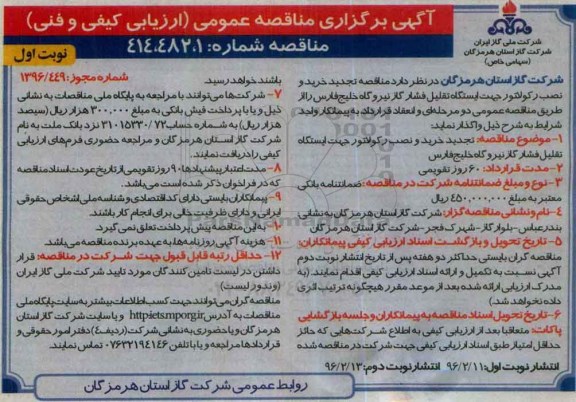 آگهی برگزاری مناقصه عمومی (ارزیابی کیفی و فنی)
مناقصه شماره: ۴۱۴.۴۸۲.۱
نوبت اول
شرکت ملی گاز ایران
شرکت گاز استان هرمزگان
(سهامی خاص)
شرکت گاز استان هرمزگان در نظر دارد مناقصه تجدید خرید و
نصب رگولاتور جهت ایستگاه تقلیل فشار گاز نیروگاه خلیج فارس را از
طریق مناقصه عمومی دو مرحله‌ای و انعقاد قرارداد به پیمانکار واجد
شرایط به شرح ذیل واگذار نماید:
۱- موضوع مناقصه: تجدید خرید و نصب رگولاتور جهت ایستگاه
تقلیل فشار گاز نیروگاه خلیج فارس
۲- مدت قرارداد: ۶۰ روز تقویمی
۳- نوع و مبلغ ضمانتنامه شرکت در مناقصه: ضمانتنامه بانکی
معتبر به مبلغ ۴۵۰،۰۰۰،۰۰۰ ریال
۴- نام و نشانی مناقصه گزار: شرکت گاز استان هرمزگان به نشانی
بندرعباس- بلوار گاز- شهرک فجر- شرکت گاز استان هرمزگان
۵- تاریخ تحویل و بازگشت اسناد ارزیابی کیفی پیمانکاران:
مناقصه گران بایستی حداکثر دو هفته پس از تاریخ انتشار نوبت دوم
آگهی نسبت به تکمیل و ارائه اسناد ارزیابی کیفی اقدام نمایند. (به
مدرک ارزیابی ارائه شده بعد از موعد مقرر هیچگونه ترتیب اثری
داده نخواهد شد.)
۶- تاریخ تحویل اسناد مناقصه به پیمانکاران و جلسه بازگشایی
پاکات: متعاقبا بعد از ارزیابی کیفی به اطلاع شرکت‌هایی که حائز
حداقل امتیاز طبق اسناد ارزیابی کیفی جهت شرکت در مناقصه شده
باشند خواهد رسید. شماره مجوز: ۱۳۹۶/۴۴۹
۷- شرکت‌ها می‌توانند با مراجعه به پایگاه ملی مناقصات به نشانی
ذیل و یا با پرداخت فیش بانکی به مبلغ ۳۰۰،۰۰۰ هزار ریال (سیصد
هزار ریال) به شماره حساب ۳۱۰۱۵۳۳۰/۷۲ نزد بانک ملت به نام
شرکت گاز استان هرمزگان و مراجعه حضوری فرم‌های ارزیابی
کیفی را دریافت نمایند.
۸- مدت اعتبار پیشنهادها ۹۰ روز تقویمی از تاریخ عودت اسناد مناقصه
که در فراخوان ذکر شده است می‌باشد.
۹- پیمانکاران بایستی دارای کد اقتصادی و شناسه ملی اشخاص حقوقی
ایرانی و دارای ظرفیت خالی برای انجام کار باشند.
۱۰- به این مناقصه پیش پرداخت تعلق نمی‌گیرد.
۱۱- هزینه آگهی روزنامه‌ها به عهده برنده مناقصه می‌باشد.
۱۲- حداقل رتبه قابل قبول جهت شرکت در مناقصه: قرار
داشتن در لیست تامین کنندگان مورد تایید شرکت ملی گاز ایران
(وندور لیست)
مناقصه گران می‌توانند جهت کسب اطلاعات بیشتر به سایت پایگاه ملی
مناقصات به آدرس http://iets.mporg.ir و یا سایت شرکت گاز استان
هرمزگان و یا حضوری به نشانی شرکت (ردیف ۴) دفتر امور حقوقی و
قراردادها مراجعه و یا با تلفن ۰۷۶۳۲۱۹۴۱۴۶ تماس نمایند.
انتشار نوبت اول: ۹۶/۲/۱۱ انتشار نوبت دوم: ۹۶/۲/۱۳
روابط عمومی شرکت گاز استان هرمزگان